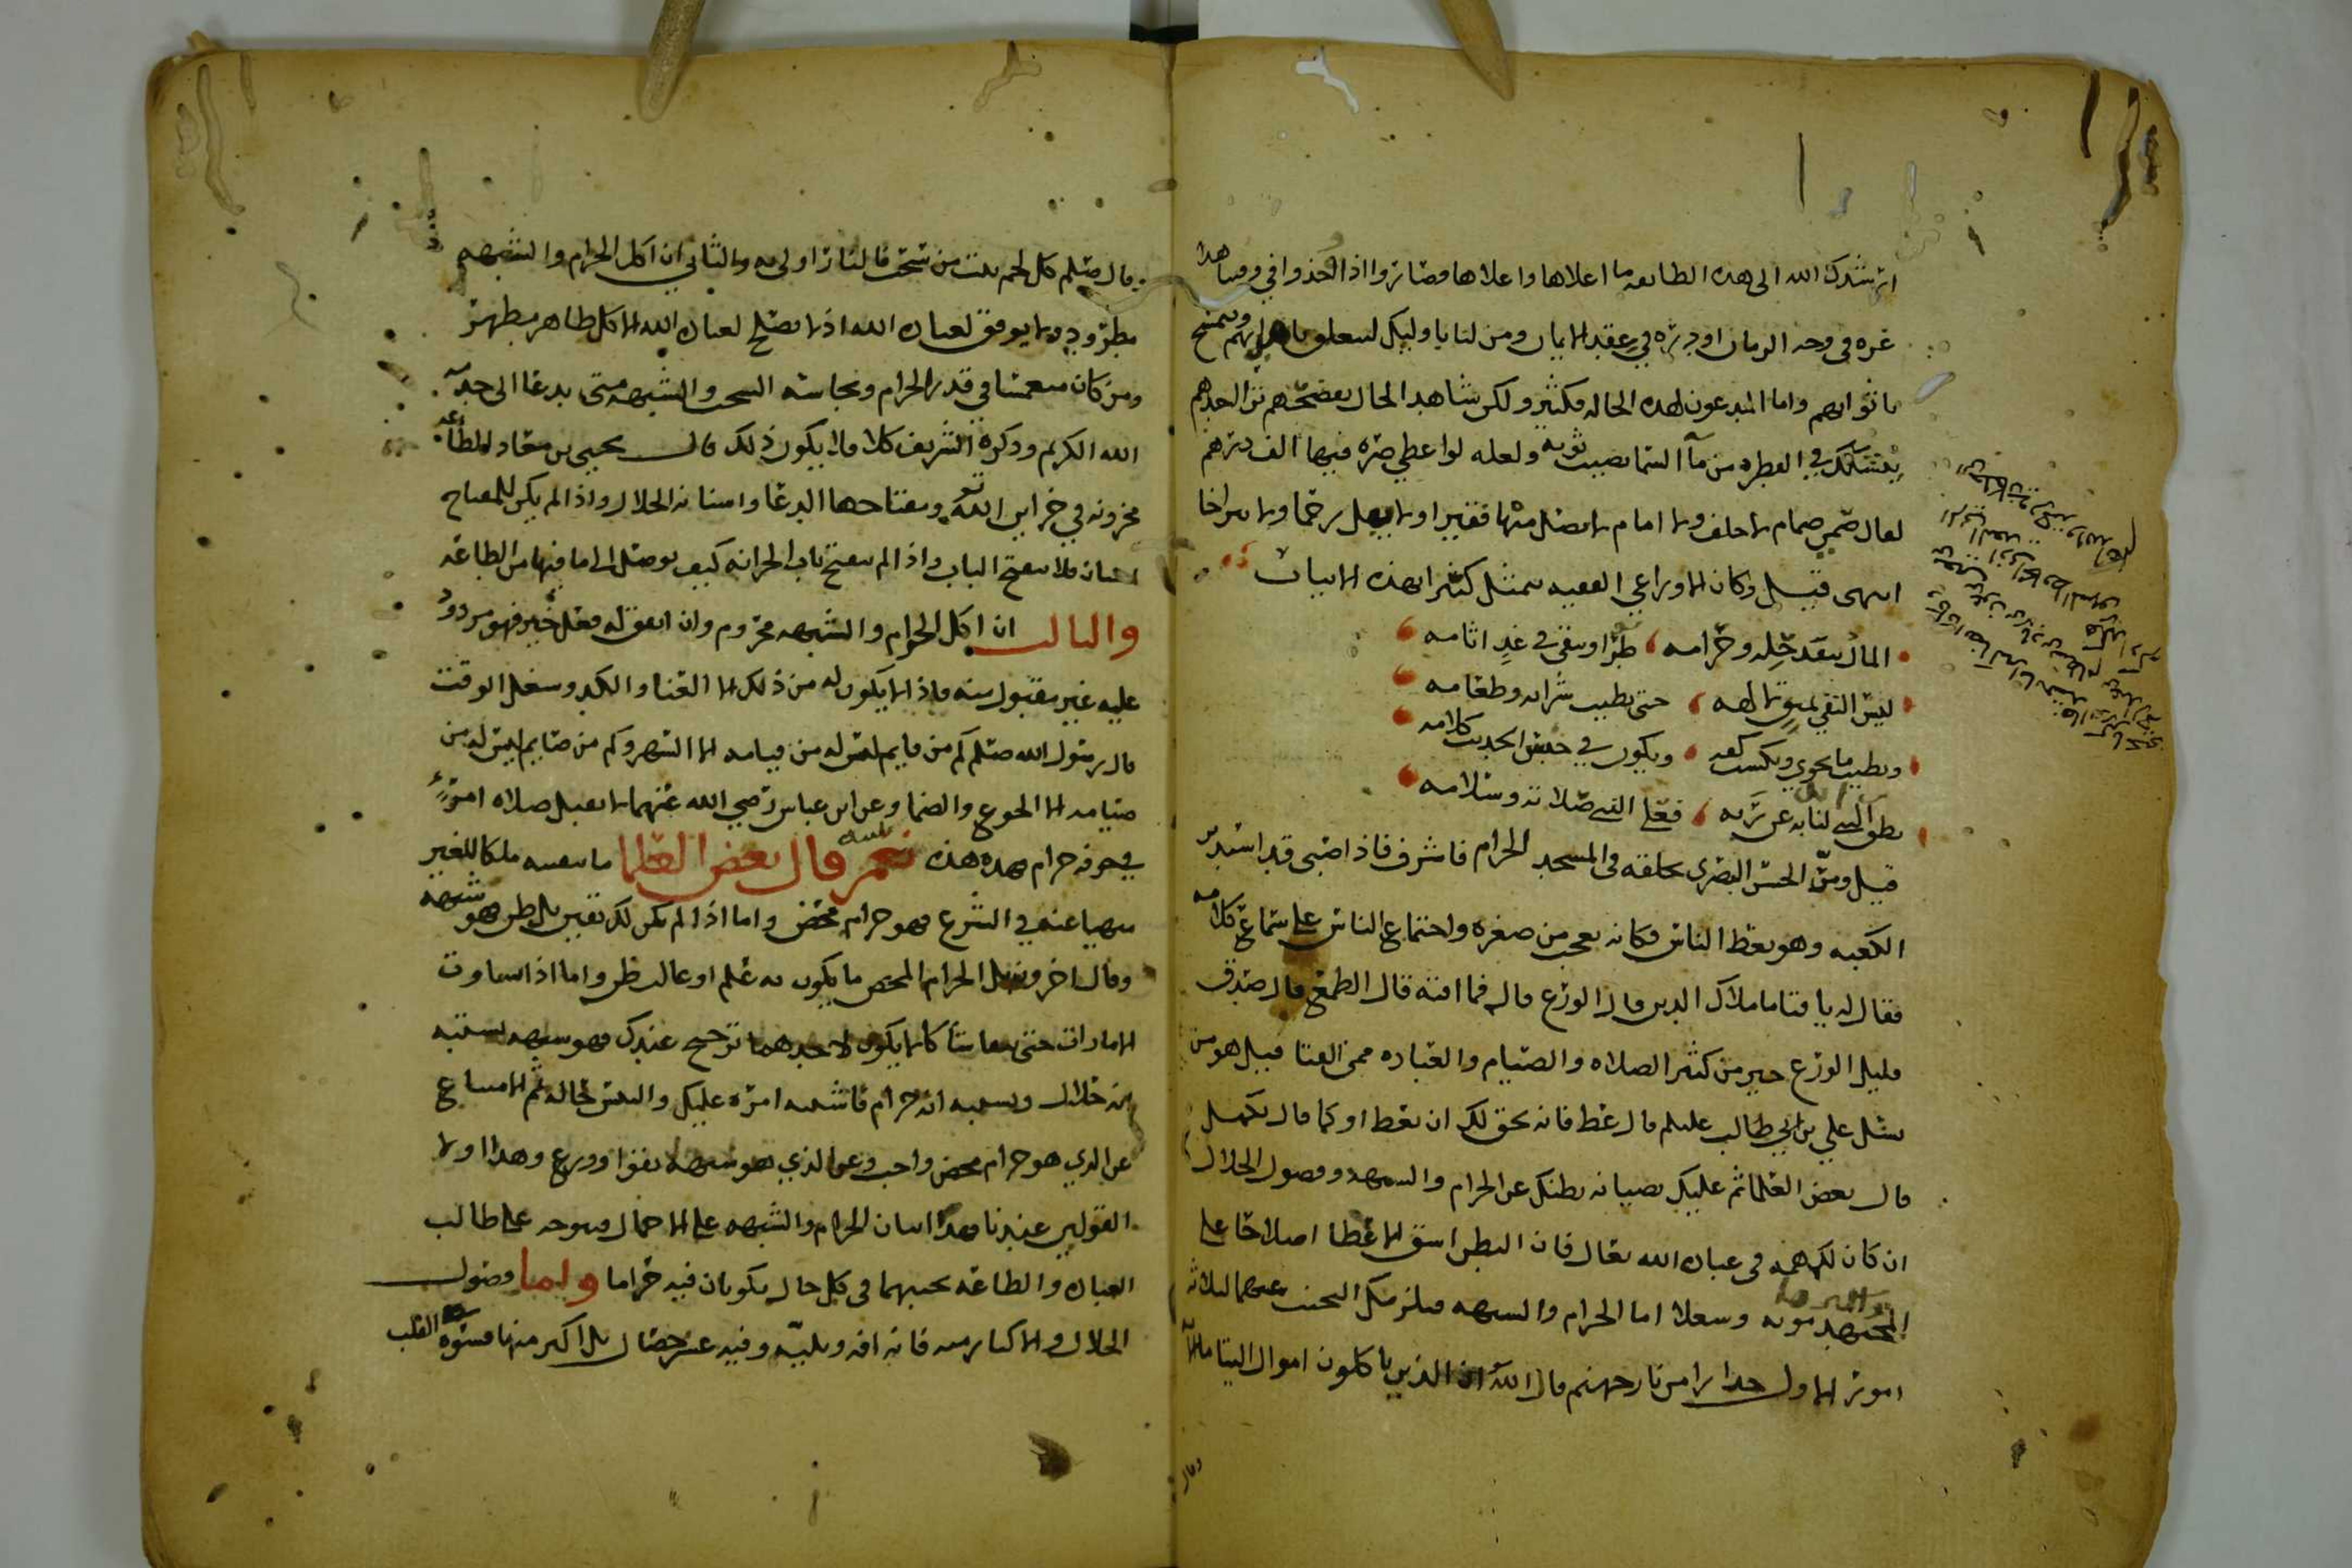 ارشدك الله الى هذه الطايفه ما اعلاها واعلاها فصاروا اذا اخذوا في وصفها هذا
غره في وجه الزمان او دره في عقد الايمان ومن لنا باوليك لنتعلق باهدابهم ونتمسح
باثوابهم واما المدعون لهذه الحاله فكثير ولكن شاهد الحال يفضحهم ترى احدهم
يتشكك في القطره من ما السما تصيب ثوبه ولعله لو اعطي صره فيها الف درهم
لقال ضمي صمام لا خلف ولا امام لا يصل منها فقيرا ولا يبل رحما ولا
انتهى قيل وكان الاوزاعي الفقيه يتمثل كثيرا بهذه الابيات
المال ينفد حله وحرامه طرا ويبقى في غد اثامه
ليس التقي بمتق لالهه حتى يطيب شرابه وطعامه
ويطيب ما يحوي ويكسب كفه ويكون في حسن الحديث كلامه
نطق النبي لنا به عن ربه فعلى النبي صلاته وسلامه
قيل ومر الحسن البصري بحلقه في المسجد الحرام فاشرف فاذا صبي قد استدبر
الكعبه وهو يعظ الناس فكانه تعجب من صغره واجتماع الناس على سماع كلامه
فقال له يا فتا ما ملاك الدين قال الورع قال فما افته قال الطمع قال صدقت
قليل الورع خير من كثير الصلاه والصيام والعباده ممن الفتا قيل هو من
نسل علي بن ابي طالب عليلم قال عظ فانه يحق لك ان تعظ او كما قال تكمله
قال بعض العلما ثم عليك بصيانه بطنك عن الحرام والشبهه وفضول الحلال
ان كان لك همه في عباده الله تعالى فان البطن اشق الاعضا اصلاحا على
المجتهد واكثرها مونه وشغلا اما الحرام والشبهه فيلزمك البحث عنهما لثلاثه
امور الاول حذرا من نار جهنم قال الله ان الذين ياكلون اموال اليتاما
وقال
وقال صلم كل لحم نبت من سحت فالنار اولى به والثاني ان اكل الحرام والشبهه
مطرود ولا يوفق لعباده الله اذ لا يصلح لعباده الله الا كل طاهر مطهر
ومن كان منغمسا في قذر الحرام ونجاسه السحت والشبهه متى يدعا الى خدمه
الله الكريم وذكره الشريف كلا فلا يكون ذلك قال يحيى بن معاذ الطاعه
مخزونه في خزاين الله ومفتاحها الدعا واسنانه الحلال واذا لم يكن للمفتاح
اسنان فلا ينفتح الباب واذا لم ينفتح باب الخزانه كيف يوصل الى ما فيها من الطاعه
والثالث ان اكل الحرام والشبهه محروم وان اتفق له فعل خير فهو مردود
عليه غير مقبول منه فاذا لا يكون له من ذلك الا العنا والكد وشغل الوقت
قال رسول الله صلم كم من قايم ليس له من قيامه الا السهر وكم من صايم ليس له من
صيامه الا الجوع والضما وعن ابن عباس رضي الله عنهما لا يقبل صلاه امرئ
في جوفه حرام فهذه هذه نعم قال بعض العلما ما تيقنته ملكا للغير
منهيا عنه في الشرع فهو حرام محض واما اذا لم يكن لك تيقن بل ظن فهو شبهه
وقال اخرون بل الحرام المحض ما يكون به علم او غالب ظن واما اذا تساوت
الامارات حتى بقا شاكا لا يكون لاحدهما ترجيح عندك فهو شبهه يشتبه
انه حلال ويشتبه انه حرام فاشتبه امره عليك والتبس حاله ثم الامتناع
عن الذي هو حرام محض واجب وعن الذي هو شبهه تقوا وورع وهذا اولا
القولين عندنا فهذا البيان الحرام والشبهه على الاجمال فيوجه على طالب
العباده والطاعه تجنبهما في كل حال يكونان فيه حراما واما فضول
الحلال والاكثار منه فانه افه وبليه وفيه عشر خصال بل اكثر منها قسوه القلب